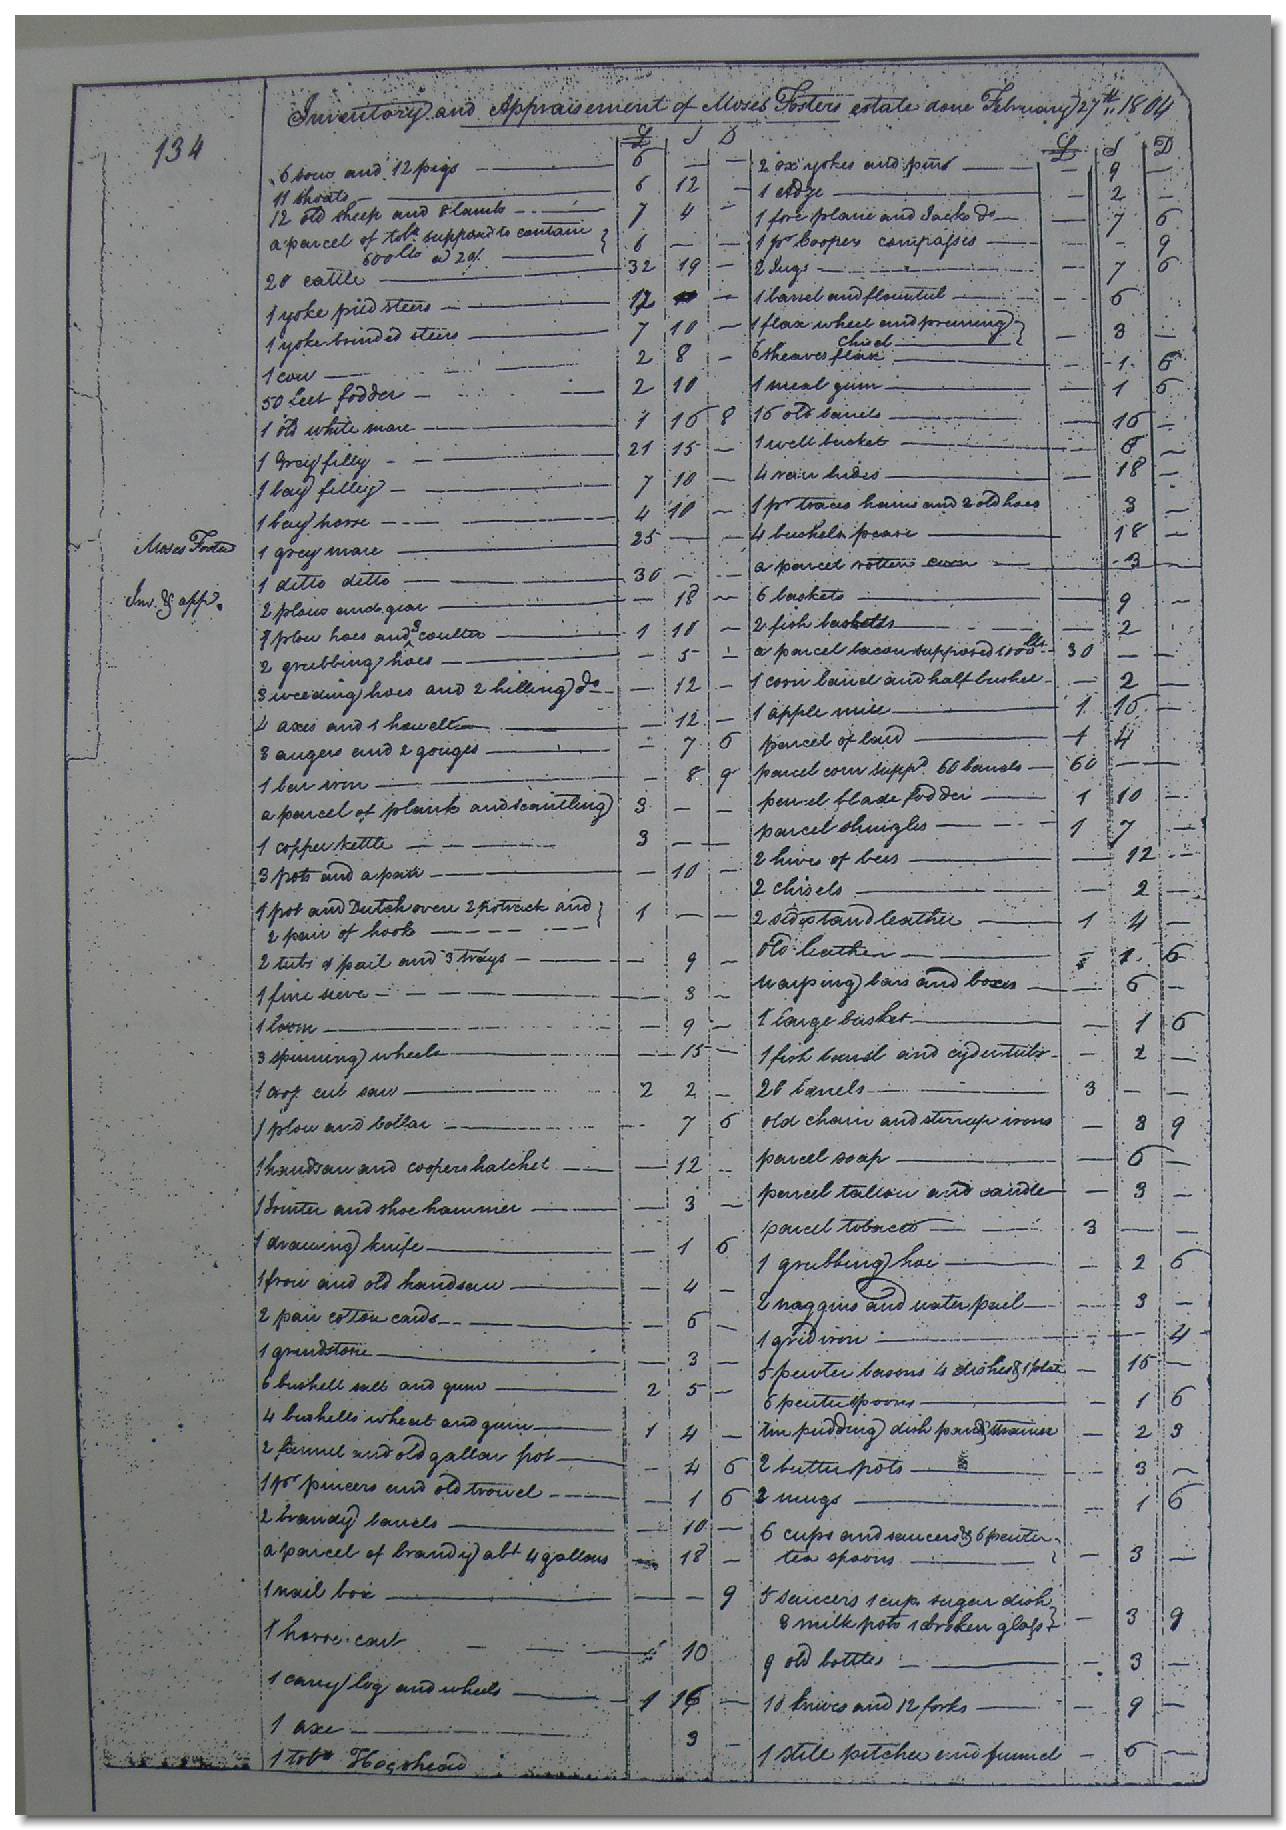 134
Inventory and Appraisement of Moses Fosters estate done February 27th 1804
£ S D
6 sows and 12 pigs 6 — —
11 shoats 6 12 —
12 old sheep and 8 lambs 7 4 —
a parcel of tobo supposd to contain
600 lbs a 20/ 6 — —
20 cattle 32 19 —
1 yoke pied steers 12 —
1 yoke brinded steers 7 10 —
1 cow 2 8 —
50 feet fodder 2 10
1 old white mare 1 16 8
1 Grey filly 21 15 —
1 bay filley 7 10 —
1 bay horse 4 10 —
1 grey mare 25 — —
1 ditto ditto 30 — —
2 plows and gear — 18 —
plow hoes and 3 coulter 1 10 —
2 grubbing hoes — 5 —
3 weeding hoes and 2 hilling do — 12 —
4 axes and 1 howell — 12 —
3 augers and 2 gouges — 7 6
1 bar iron — 8 9
a parcel of plank and scantling 3 — —
1 copper kettle 3 — —
3 pots and a pan — 10 —
1 pot and Dutch oven 2 potrack and
2 pair of hooks 1 — —
2 tubs 1 pail and 3 trays — 9 —
1 fine sieve — 3 —
1 loom — 9 —
3 spinning wheels — 15 —
1 crop cut saw 2 2 —
1 plow and collar — 7 6
1 handsaw and coopers hatchet — 12 —
1 Jointer and shoe hammer — 3 —
1 drawing knife — 1 6
1 frow and old handsaw — 4 —
2 pair cotton cards — 6 —
1 grindstone — 3 —
6 bushell salt and gum 2 5 —
4 bushells wheat and gum 1 4 —
2 funnel and old gallon pot — 4 6
1 pr pincers and old trowel — 1 6
2 brandy barrels — 10 —
a parcel of brandy abt 4 gallons — 18 —
1 nail box — — 9
1 horse cart 10
1 carry log and wheels 1 16 —
1 axe 3 —
1 tobo Hogshead
Moses Foster
Inv. & app.
£ S D
2 ox yokes and pins — 9 —
1 adze — 2 —
1 fore plane and Jack do — 7 6
1 pr Coopers compasses — — 9
2 Jugs — 7 6
1 barrel and flour tub — 6
1 flax wheel and pruning
chisel — 3 —
6 sheaves flax — 1 6
1 meal gum — 1 6
16 old barrels — 16 —
1 well bucket — 6 —
4 raw hides — 18 —
1 pr traces hams and 2 old hoes 3 —
4 bushels pease 18 —
a parcel rotten corn — 3 —
6 baskets — 9 —
2 fish baskets — 2 —
a parcel bacon supposed 1000 lbs 30 — —
1 corn barrel and half bushel — 2 —
1 apple mill 1 16 —
parcel of lard 1 4
parcel corn suppd 60 barrels 60 — —
parcel blade fodder 1 10 —
parcel shingles 1 7 —
2 hives of bees — 12 —
2 chisels — 2 —
2 sides tand leather 1 4 —
old leather 1 6
warping bars and boxes — 6 —
1 large basket — 1 6
1 fish barrel and cyder tubs — 2 —
20 barrels 3 — —
old chain and stirrup irons — 8 9
parcel soap — 6 —
parcel tallow and candle — 3 —
parcel tobacco 3 — —
1 grubbing hoe — 2 6
2 naggins and water pail — 3 —
1 gridiron — — 4
5 pewter basons 4 dishes & 1 plate — 16 —
6 pewter spoons — 1 6
tin pudding dish pan & strainer — 2 3
2 butter pots — 3 —
2 mugs — 1 6
6 cups and saucers & 6 pewter
tea spoons — 3 —
5 saucers 1 cup sugar dish
3 milk pots 1 broken glass — 3 9
9 old bottles — 3 —
10 knives and 12 forks — 9 —
1 still pitcher and funnel — 6 —